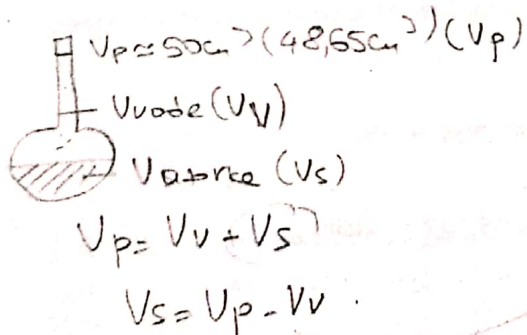 Vp≈50cm³ (48,65cm³) (Vp)
Vvode (Vv)
Vuzorka (Vs)
Vp = Vv + Vs
Vs = Vp - Vv.